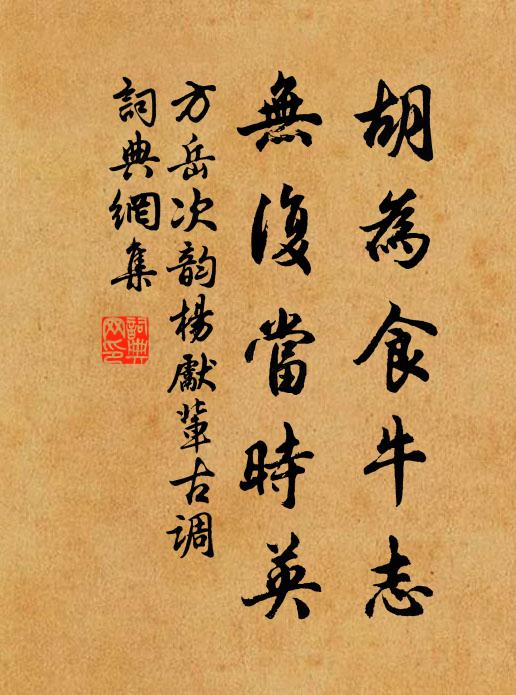 胡為食牛志
無復當時英
方岳次韵楊獻輩古调
詞典網集
詞典網印